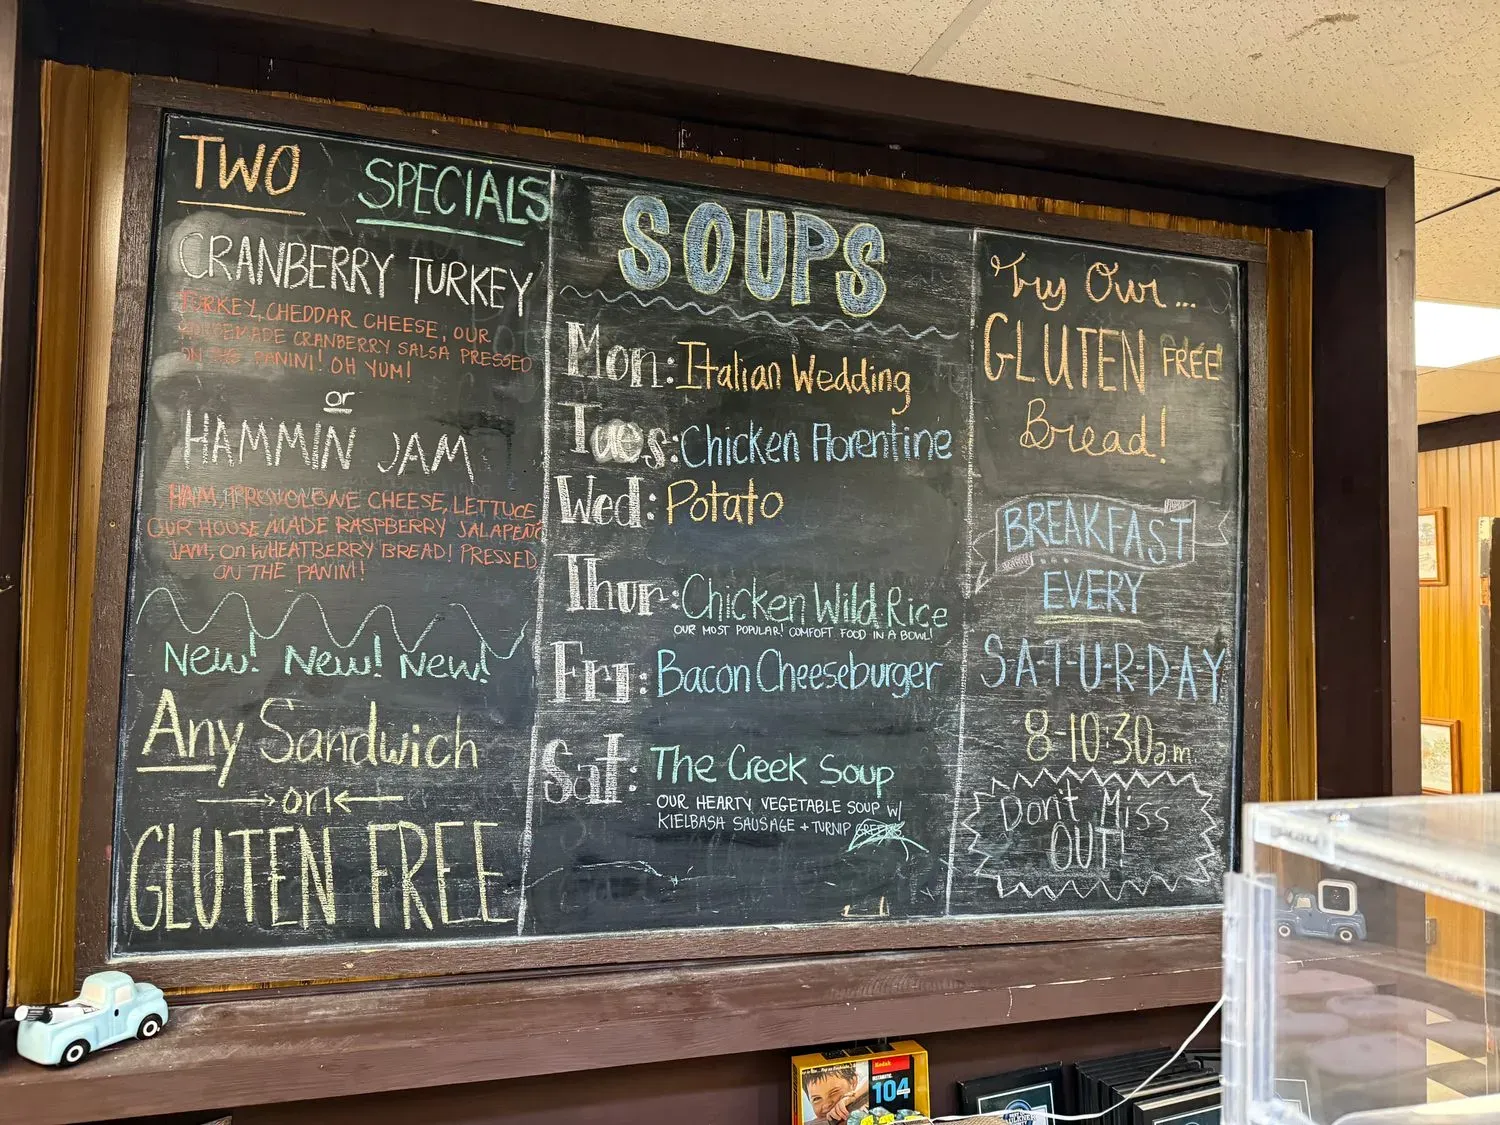 TWO SPECIALS
CRANBERRY TURKEY
TURKEY, CHEDDAR CHEESE, OUR
HOMEMADE CRANBERRY SALSA PRESSED
ON THE PANINI! OH YUM!
or
HAMMIN JAM
HAM, PROVOLONE CHEESE, LETTUCE
OUR HOUSE MADE RASPBERRY JALAPEÑO
JAM, ON WHEATBERRY BREAD! PRESSED
ON THE PANINI!
New! New! New!
Any Sandwich
on
GLUTEN FREE
SOUPS
Mon: Italian Wedding
Tues: Chicken Florentine
Wed: Potato
Thur: Chicken Wild Rice
OUR MOST POPULAR! COMFORT FOOD IN A BOWL!
Fri: Bacon Cheeseburger
Sat: The Creek Soup
OUR HEARTY VEGETABLE SOUP W/
KIELBASA SAUSAGE + TURNIP GREENS
Try Our...
GLUTEN FREE
Bread!
BREAKFAST
EVERY
S-A-T-U-R-D-A-Y
8-10:30a.m.
Don't Miss
OUT!
Kodak
104